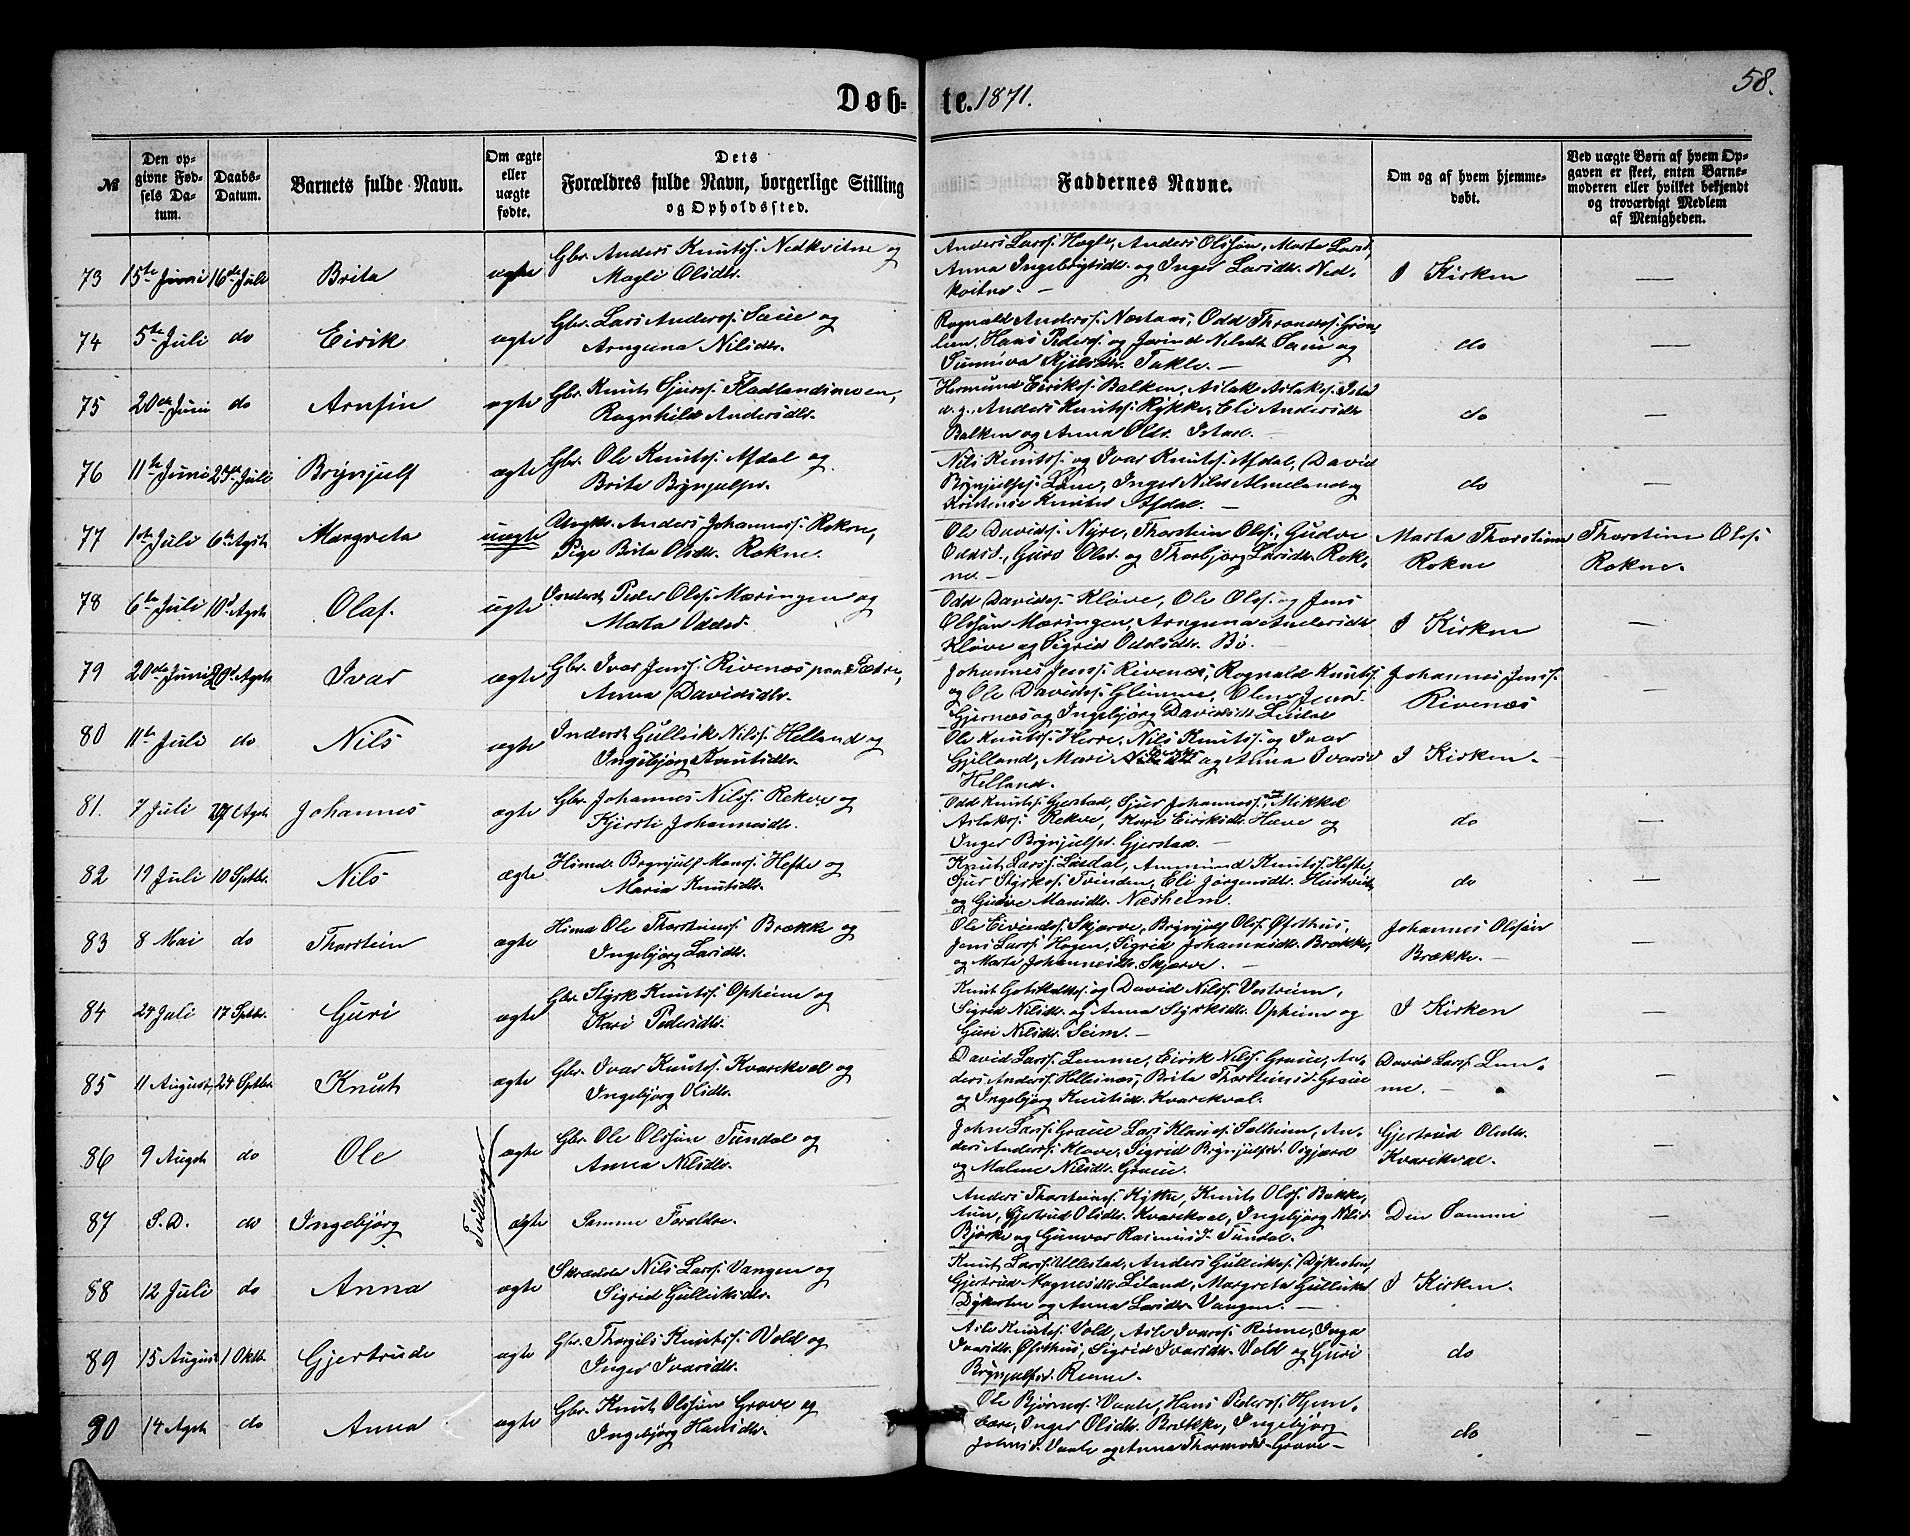 58.
Døb= te. 1871.
№
Den op=
givne Fød=
sels Da=
tum.
Daabs=
Datum.
Barnets fulde Navn.
Om ægte
eller
uægte
fødte.
Dets
Forældres fulde Navn, borgerlige Stilling
og Opholdssted.
Faddernes Navne.
Om og af hvem hjemme=
døbt.
Ved uægte Børn af hvem Op=
gaven er skeet, enten Barne=
moderen eller hvilket bekjendt
og troværdigt Medlem
af Menigheden.
73 15te Juni 16de Juli Brita ægte
Gbr. Anders Knutss. Nedkvitne og
Magli Olsdtr.
Anders Larss. Hagle, Anders Olssøn, Marta Larsd.,
Anna Ingebrigtsdtr. og Inger Larsdtr. Ned=
kvitne. —
I Kirken —
74 5te Juli do Eirik ægte
Gbr. Lars Anderss. Saue og
Arnguna Nilsdtr.
Rognald Anderss. Næstaas, Odd Thronds. Grøn=
lien, Hans Peders. og Jorind Nilsdt. Saue og
Sunniva Kjelsdtr. Takle. —
do —
75 20de Juni do Arnfin ægte
Gbr. Knut Sjurs. Fladlandsmoen,
Ragnhild Andersdtr.
Hermund Eiriks. Balken, Aslak Aslaks. Istad
v.g., Anders Knutss. Rykke, Eli Andersdtr
Balken og Anna Olsdr. Istad. —
do —
76 11te Juni 23de Juli Brynjulf ægte
Gbr. Ole Knutss. Afdal og
Brita Brynjulfsr.
Nils Knutss. og Ivar Knutss. Afdal, David
Brynjulfss. Lune, Inger Nilsd Almeland og
Kristense Knutsd Afdal. —
do —
77 1ste Juli 6te Agst. Margreta uægte
Ungkr. Anders Johanness. Rokne,
Pige Brita Olsdtr. Rokne.
Ole Davids. Nyre, Thorstein Olss., Gudve
Oddsd., Guro Olsd. og Thorbjørg Larsdtr. Rok=
ne. —
Marta Thorsteinsd
Rokne
Thorstein Olss.
Rokne.
78 6te Juli 10d Agst. Olaf. ægte
Inderst Peder Olss. Mæringen og
Marta Oddsd.
Odd Davidss. Kløve, Ole Olss. og Jens
Olssøn Mæringen, Arnguna Andersdtr
Kløve og Sigrid Oddsdtr. Bø.
I Kirken —
79 20de Juni 20d Agst. Ivar ægte
Gbr. Ivar Jenss. Rivenæs paa Sætre,
Anna Davidsdtr.
Johannes Jenss. Rivenæs, Rognald Knuts.
og Ole Davidss. Glimme, Olene Jensd.
Gjernæs og Ingebjørg Davidsdtr
Johannes Jenss.
Rivenæs —
80 11te Juli do Nils ægte
Inderst Gullik Nilss. Helland og
Ingebjørg Knutsdtr.
Ole Knutss. Herre, Nils Knutss. og Ivar
Gjelland, Mari og Anna Ivarsd
Helland.
I Kirken. —
81. 7 Juli 20d Agst Johannes ægte
Gbr. Johannes Nilss. Rekve og
Kjersti Johannesdtr.
Odd Knutss. Gjerstad, Sjur Johanness. og Mikkel
Aslaks. Rekve, Kari Eiriksdtr. Hæve og
Inger Brynjulfsr. Gjerstad. —
do —
82 19 Juli 10 Septbr. Nils ægte
Himd. Brynjulf Monss. Hefte og
Maria Knutsdtr.
Knut Larss. Lærdal, Ammund Knutss. Hefte,
Sjur Styrkss. Tvinden, Eli Jørgensdtr. Hustveit,
og Gudve Monsdtr. Næsheim.
do —
83 8 Mai do Thorstein ægte
Himd Ole Thorsteinss. Brække og
Ingebjørg Larsdtr.
Ole Eivindss. Skjerve, Brynjulf Olss. Øfsthus,
Jens Larss. Hagen, Sigrid Johannesdtr. Brække,
og Marta Johannesdtr. Skjerve. —
Johannes Olssøn
Brække. —
—
84 24 Juli 17 Septbr. Guri ægte
Gbr. Styrk Knutss. Opheim og
Kari Pedersdtr.
Knut Gotskalkss. og David Nilss. Vestrem,
Sigrid Nilsdtr. og Anna Styrksdtr. Opheim og
Guri Nilsdtr. Seim. —
I Kirken —
85 11 August 24 Septbr. Knut ægte
Gbr. Ivar Knutss. Kvarekval og
Ingebjørg Olsdtr.
David Larss. Lemme, Eirik Nilss. Graue, An=
ders Anderss. Hellesnæs, Brita Thorsteinsd. Graue
og Ingebjørg Knutsdtr. Kvarekval.
David Larss. Lem=
me. —
—
86 9 Augst do Ole Tvillinger ægte
Gbr. Ole Olssøn Tundal og
Anna Nilsdtr.
John Larss. Graue Lars Klauss. Sælheim, An=
ders Anderss. Kløve, Sigrid Brynjulfsd.
og Malene Nilsdtr. Graue.
Gjertrud Olsdtr.
Kvarekval. —
87 S.D. do Ingebjørg ægte
Samme Forældre.
Anders Thorsteinss. Kytte, Knut Olss. Bakke,
tun, Gjertrud Olsdtr. Kvarekval, Ingebjørg Nilsd
Bjørke og Gunvor Rasmusd. Tundal.
Den Samme —
88 12 Juli do Anna ægte
Skrædder Nils Larss. Vangen og
Sigrid Gulliksdtr.
Knut Larss. Ullestad, Anders Gulliks. Dykesten,
Gjertrud Magnesdtr. Liland, Margreta Gulliksd
Dykesten og Anna Larsdtr. Vangen. —
I Kirken. —
89 15 August 1 Oktbr. Gjertrude ægte
Gbr. Thorgils Knutss. Vold og
Inger Ivarsdtr.
Asle Knutss. Vold, Asle Ivarss. Rinne, Inga
Ivarsdtr. Øfsthus, Sigrid Ivarsdtr. Vold og Guri
Brynjulfsd. Rinne.
do —
90 14 Agst. do Anna ægte
Gbr. Knut Olssøn Grove og
Ingebjørg Hansdtr.
Ole Bjørness. Vaale, Hans Pederss. Hjem=
bære, Inger Olsdtr. Brække, Ingebjørg
Johnsd. Vaale og Anna Thormodsd. Grove —
do —